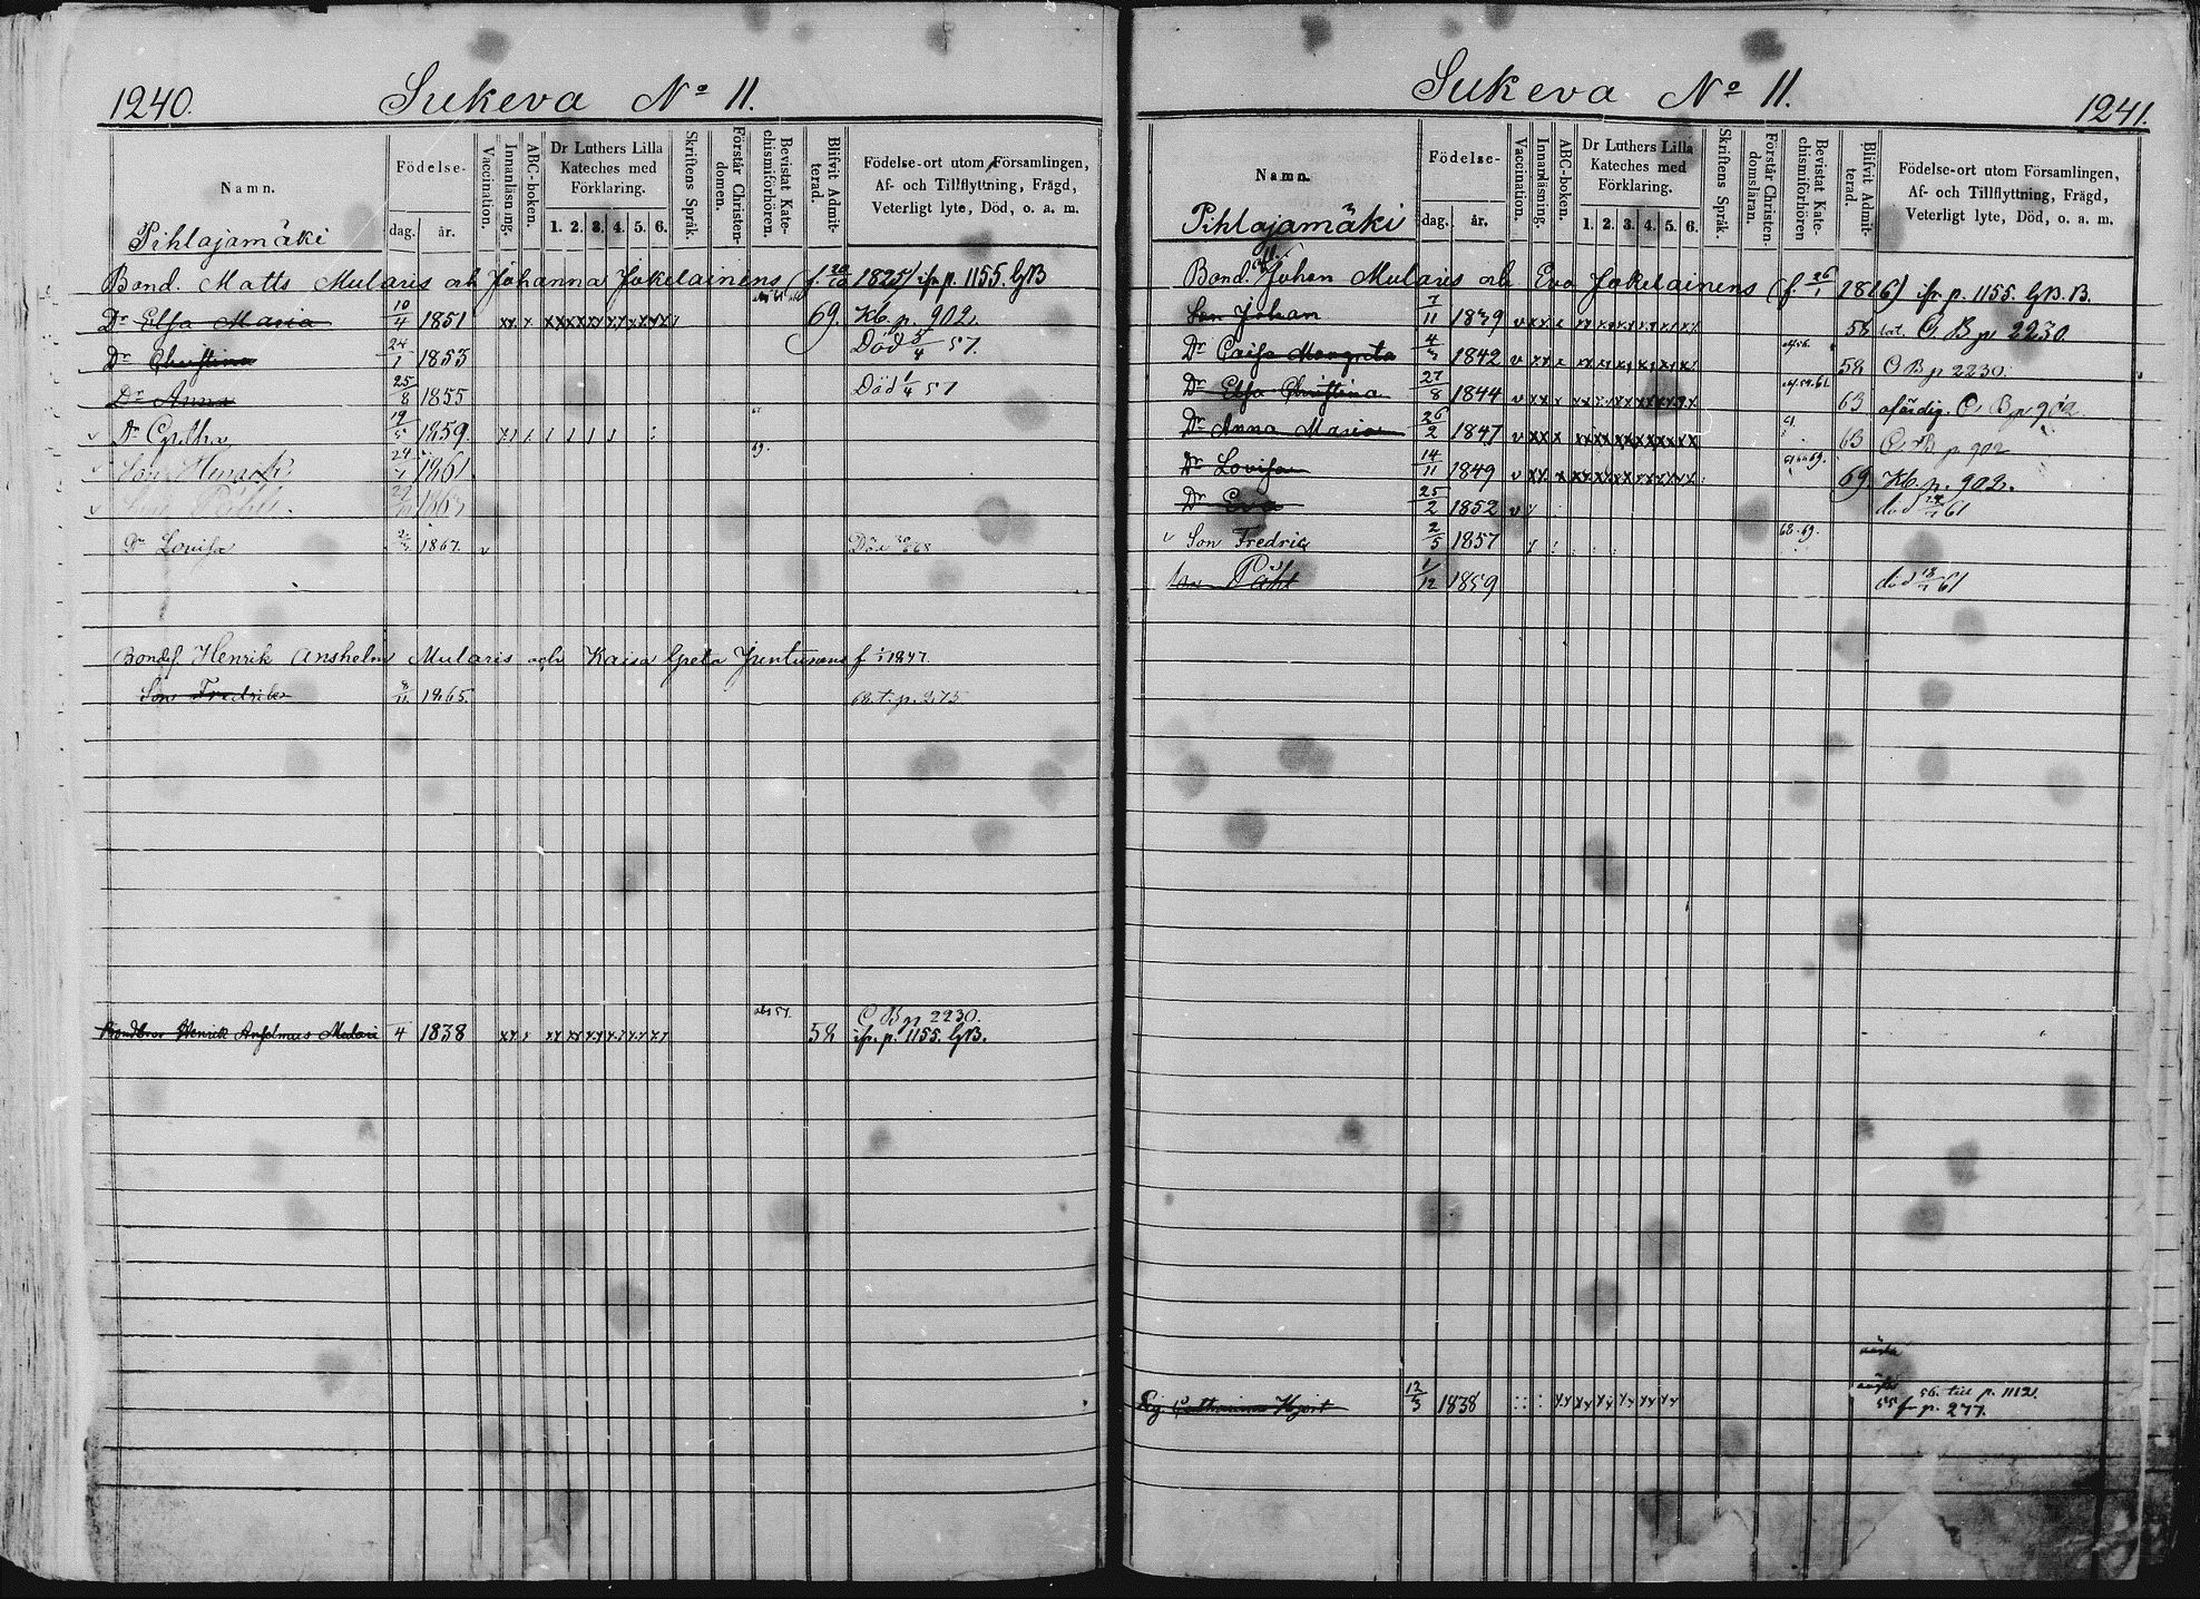 1240. Sukeva No 11.
Namn. Födelse- dag. år. Vaccination. Innanläsning. ABC-boken. Dr Luthers Lilla Kateches med Förklaring. 1. 2. 3. 4. 5. 6. Skriftens Språk. Förstår Christendomen. Bevistat Katechismiförhören. Blifvit Admitterad. Födelse-ort utom Församlingen, Af- och Tillflyttning, Frägd, Veterligt lyte, Död, o. a. m.
Pihlajamäki
Bond. Matts Mularis och Johanna Jokelainens (f. 20/10 1825) ifr. p. 1155. GB
Dr Elsa Maria 10/4 1851 69. Kb. p. 902.
Dr Christina 24/1 1853 Död 5/4 57.
Dr Anna 25/8 1855 Död 1/4 57
Dr Gretha 19/5 1859.
Son Henrik 24/1 1861
Dr Lovisa 1867. v Död
Bondes. Henrik Anshelm Mularis och Kaisa Greta Juntunens f 1847.
Son Fredrik 1865. 68. t. p. 275.
C B p 2230.
Bondbror Henrik Anselmus Mulari 4 1838 58 ifr. p. 1155. GB.
Sukeva No 11. 1241.
Namn. Födelse- dag. år. Vaccination. Innanläsning. ABC-boken. Dr Luthers Lilla Kateches med Förklaring. 1. 2. 3. 4. 5. 6. Skriftens Språk. Förstår Christendomsläran. Bevistat Katechismiförhören Blifvit Admitterad. Födelse-ort utom Församlingen, Af- och Tillflyttning, Frägd, Veterligt lyte, Död, o. a. m.
Pihlajamäki
Bond. Johan Mularis och Eva Jokelainens (f. 26/1 1816) ifr. p. 1155. GB. B.
Son Johan 7/11 1839 58 C B p 2230.
Dr Caisa Margreta 4/3 1842 58 C B p 2230.
Dr Elsa Christina 27/8 1844 63 C B p 902
Dr Anna Maria 26/2 1847 63 C B p 902
Dr Lovisa 14/11 1849 69 Kb. p. 902.
Dr Eva 25/2 1852 död 61
Son Fredric 2/5 1857 68. 69.
Son Påhl 1/12 1859 död 61
56. till p. 1112.
Pig Catharina Hjort 12/3 1838 55 fr p. 277.